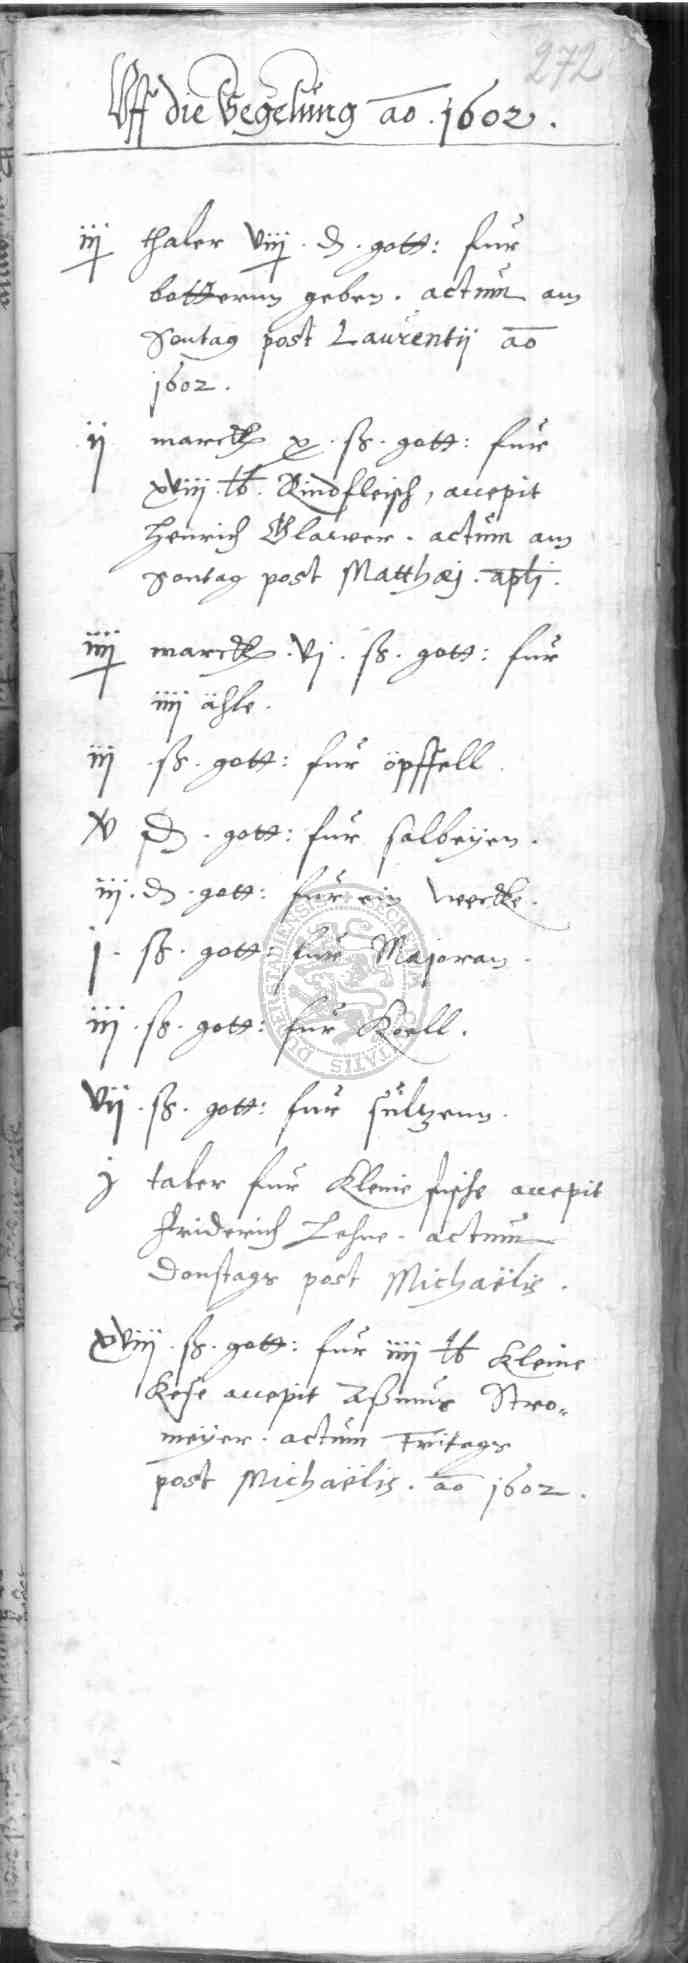 272
Uff die Segelung ao. 1602.
iij thaler viij. d. gott: fur
botterun geben. actum am
Sontag post Laurentij ao
1602.
ij marck x. ß. gott: fur
xviij. lb. Rindfleisch, accepit
Henrich Glawer. actum am
Sontag post Matthæj. apli.
iiij marck. vj. ß. gott: fur
iiij ähle.
iij. ß. gott: fur öpffell.
v d. gott: fur salbeyen.
iij. d. gott: fur ein wecke.
j. ß. gott: fur Majoran.
iij. ß. gott: fur Koell.
vij. ß. gott: fur sültzenn.
j taler fur Kleine fische accepit
Friderich Lehne. actum
Donstags post Michaëlis.
xviij. ß. gott: fur iiij lb Kleine
Kese accepit Aßmus Stro=
meyer. actum Fritags
post Michaëlis. ao 1602.